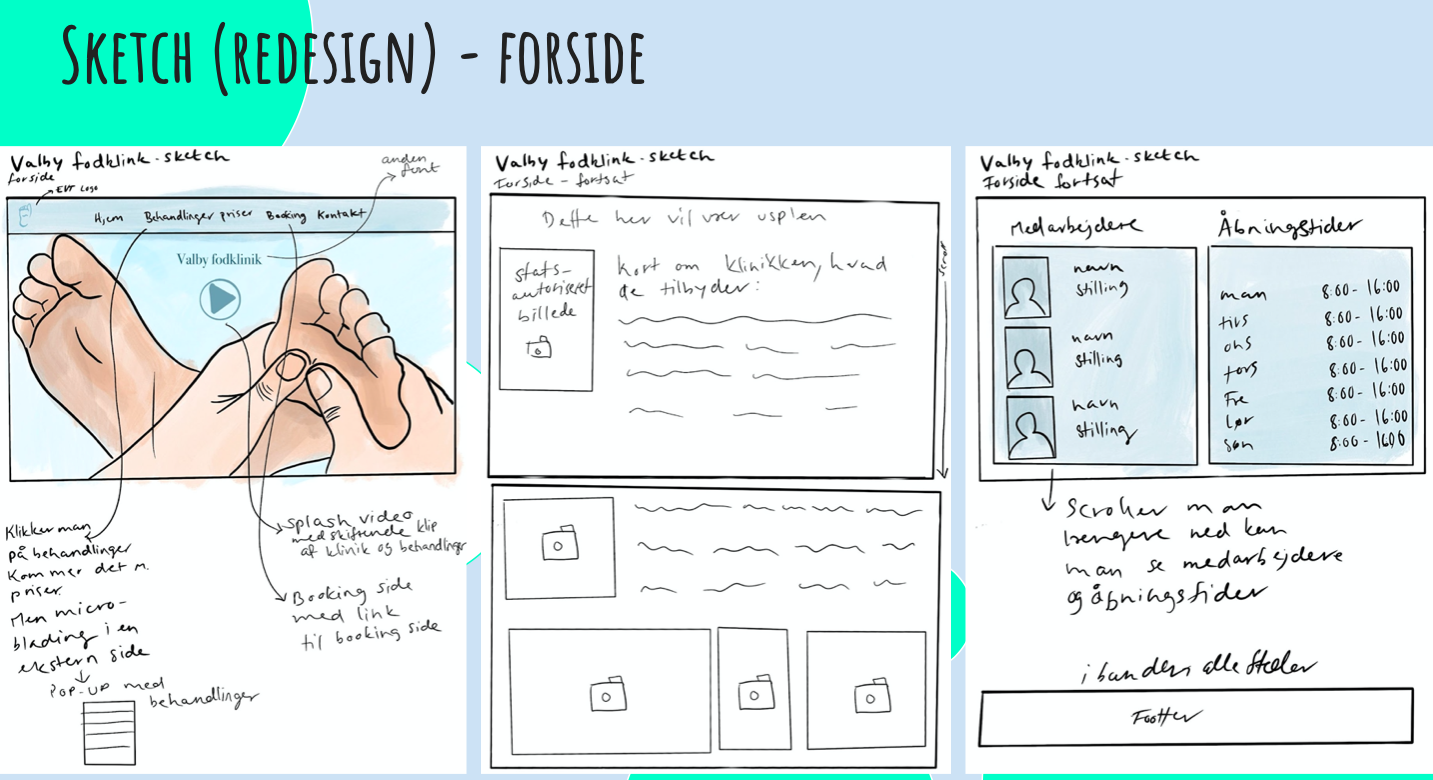 SKETCH (REDESIGN) - FORSIDE
Valby fodklink - sketch
forside
EVT Logo
anden
font
Hjem Behandlinger priser Booking Kontakt
Valby fodklinik
Klikker man
på behandlinger
kommer det m.
priser.
Men micro-
blading i en
ekstern side
POP-UP med
behandlinger
splash video
med skiftende klip
af klinik og behandlinger
Booking side
med link
til booking side
Valby fodklink - sketch
Forside - fortsat
Dette her vil vær usplen
stats-
autoriseret
billede
kort om klinikken, hvad
de tilbyder:
scroll
Valby fodklink - sketch
Forside fortsat
Medarbejdere
navn
stilling
navn
stilling
navn
stilling
Åbningstider
man 8:00 - 16:00
tirs 8:00 - 16:00
ons 8:00 - 16:00
tors 8:00 - 16:00
Fre 8:00 - 16:00
Lør 8:00 - 16:00
Søn 8:00 - 1600
Scroller man
længere ned kan
man se medarbejdere
og åbningstider
i bunden alle steder
Footter